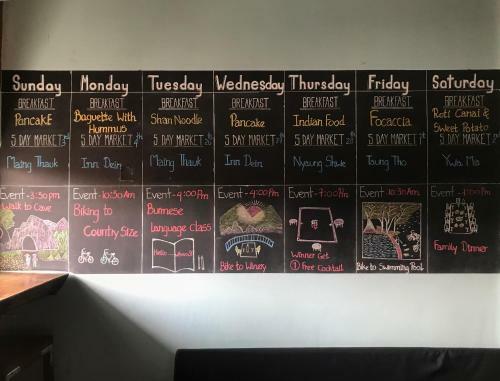 Sunday
BREAKFAST
PancakE
5 DAY MARKET
Maing Thauk
Event - 3:30 pm
Walk to Cave
Monday
BREAKFAST
Baguette With
Hummus
5 DAY MARKET
Inn Dein
Event - 10:30 Am
Biking to
Country Size
Tuesday
BREAKFAST
Shan Noodle
5 DAY MARKET
Maing Thauk
Event - 4:00 Pm
Burmese
Language Class
Hello
Wednesday
BREAKFAST
Pancake
5 DAY MARKET
Inn Dein
Event - 4:00 Pm
Bike to Winery
Thursday
BREAKFAST
Indian Food
5 DAY MARKET
Nyaung Shwe
Event - 7:00 Pm
Winner Get
① Free Cocktail
Friday
BREAKFAST
Focaccia
5 DAY MARKET
Toung Tho
Event 10:30 Am
Bike to Swimming Pool
Saturday
BREAKFAST
Roti Canai &
Sweet Potato
5 DAY MARKET
Ywa Ma
Event
Family Dinner